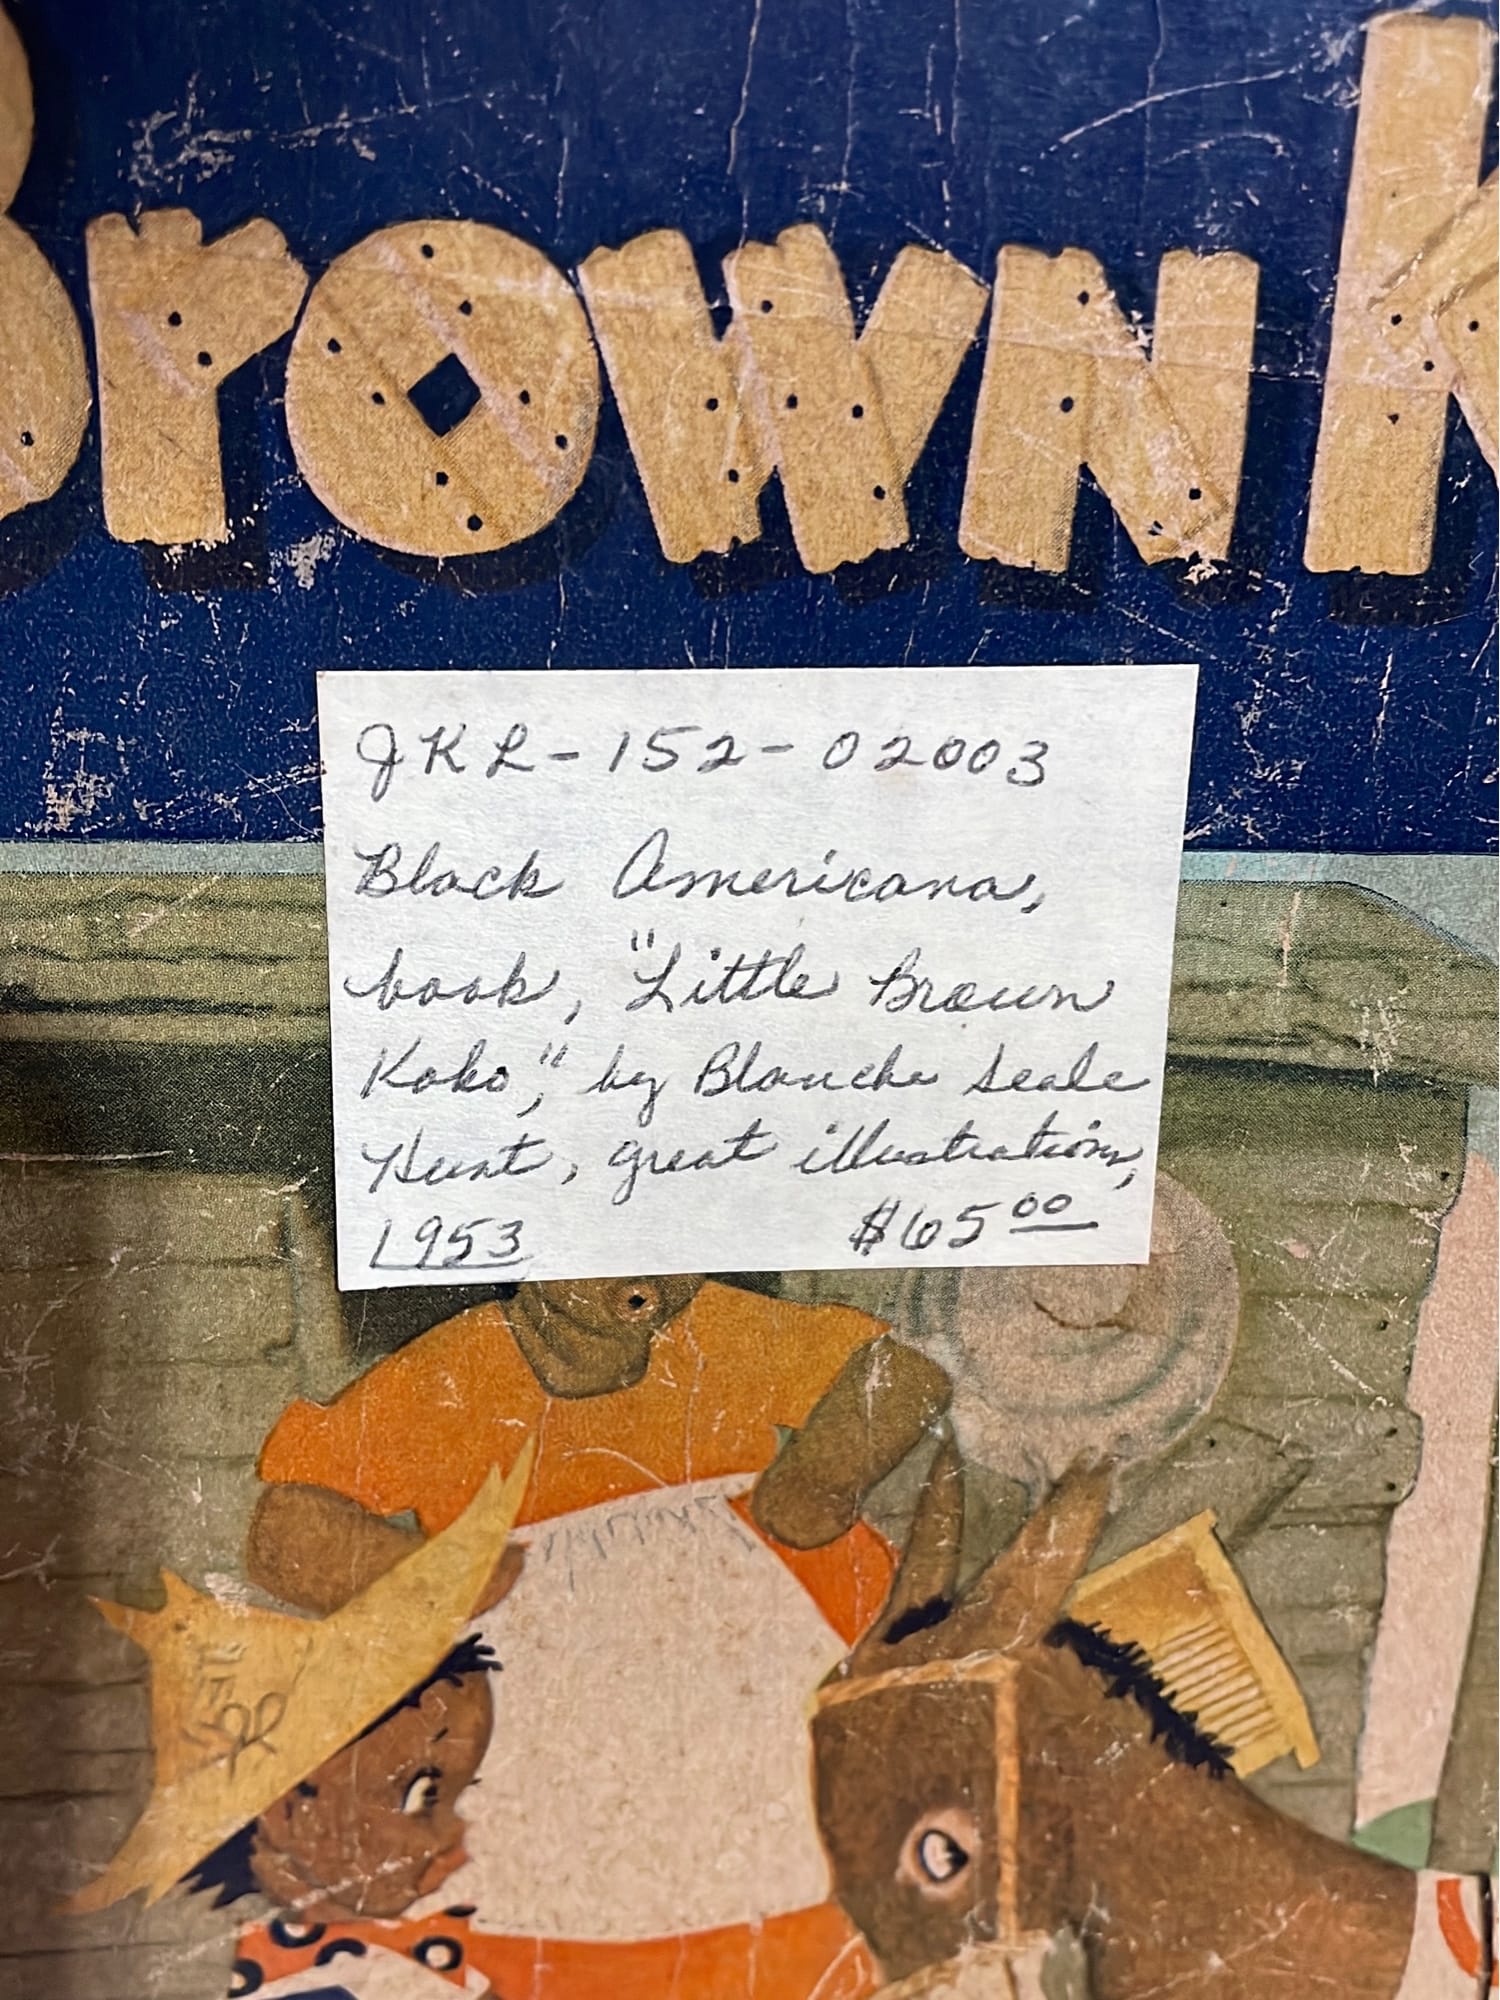 Brown K
JKL-152-02003
Black Americana,
book, "Little Brown
Koko," by Blanche Seale
Hunt, great illustrations,
1953 $65.00